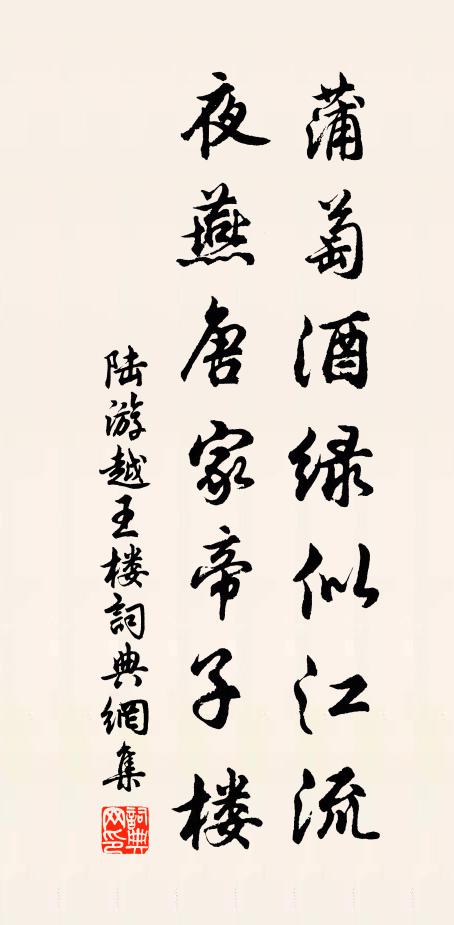 蒲萄酒绿似江流
夜燕唐家帝子楼
陆游越王楼詞典網集
詞典网印